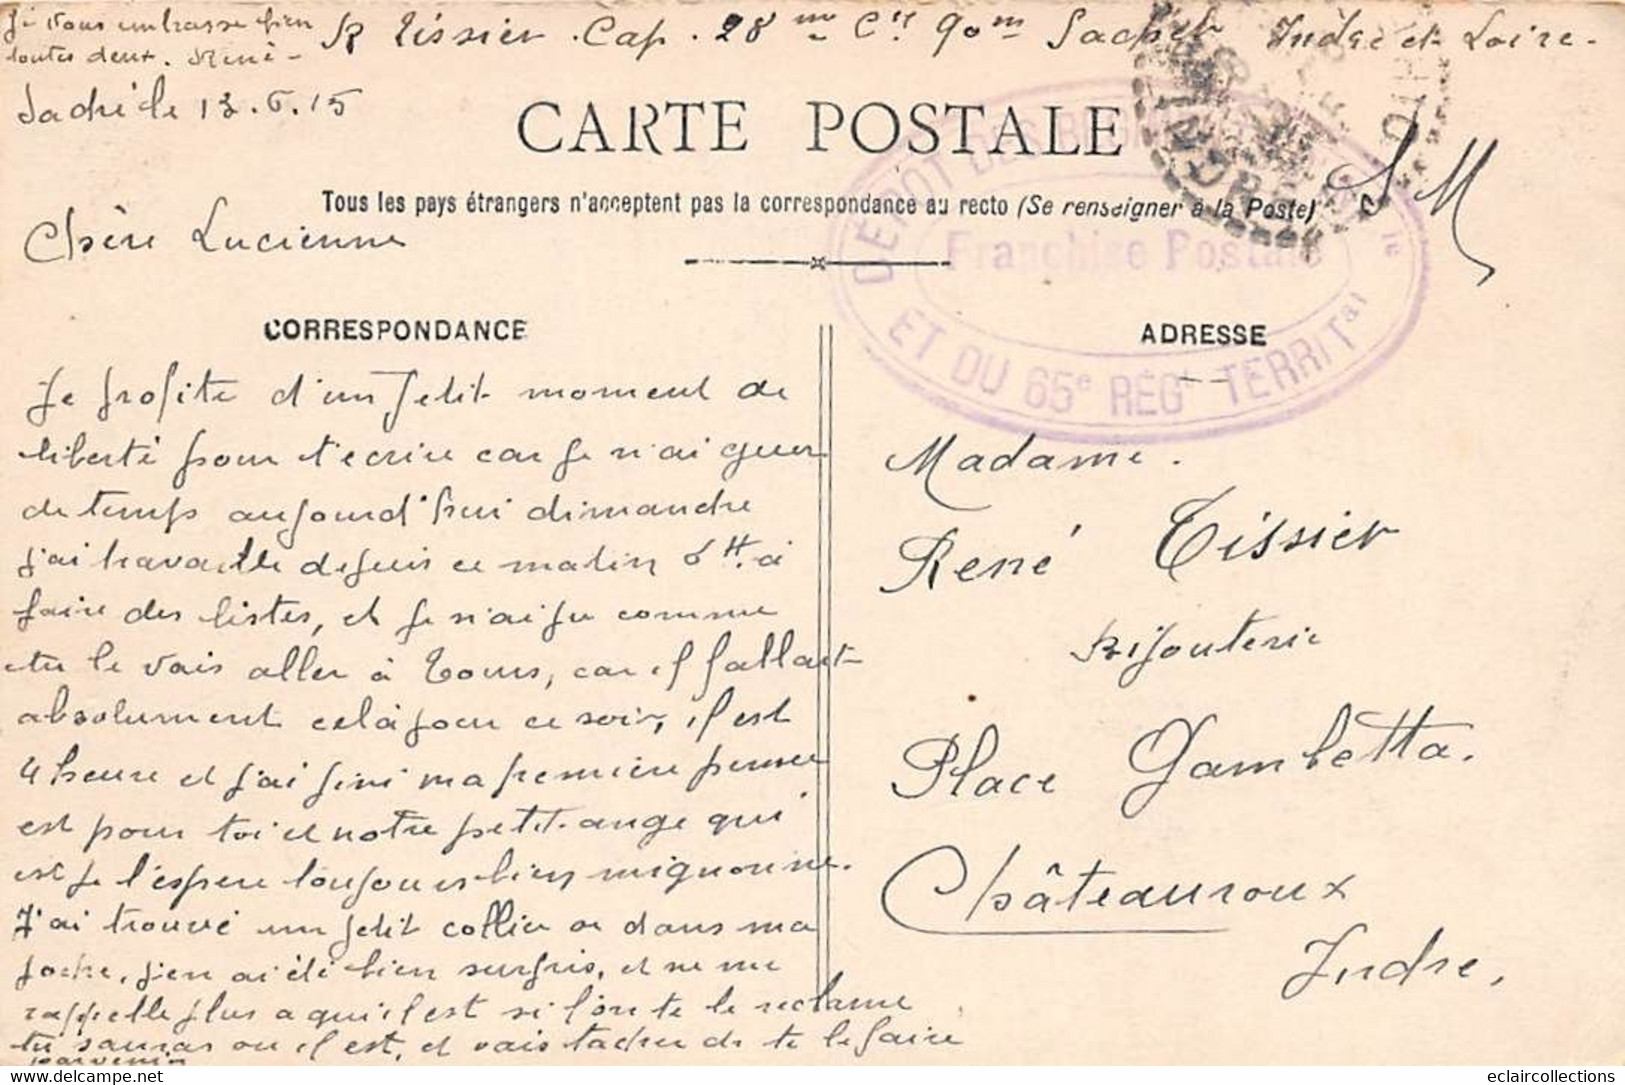 Je vous embrasse bien
toutes deux. René -
R Tissier. Cap. 28me Cie 90me Saché Indre et Loire.
Saché le 13.6.15
CARTE POSTALE
Tous les pays étrangers n'acceptent pas la correspondance au recto (Se renseigner à la Poste)
S M
DÉPOT DES
Franchise Postale
ET DU 65e RÉGt TERRITal
Chère Lucienne
CORRESPONDANCE
Je profite d'un petit moment de
liberté pour t'ecrire car je n'ai guer
de temps aujourd'hui dimanche
j'ai travaille depuis ce matin 6H. à
faire des listes, et je n'ai pu comme
tu le vais aller à Tours, car il fallait
absolument cela pour ce soir, il est
4 heure et j'ai fini ma première pensee
est pour toi et notre petit ange qui
est je l'espere toujours bien mignonne.
J'ai trouvé un petit collier or dans ma
poche, j'en ai été bien surpris, et ne me
rappelle plus a qui il est si l'on te le reclame
tu sauras ou il est, et vais tacher de te le faire
parvenir
ADRESSE
Madame.
René Tissier
Bijouterie
Place Gambetta.
Châteauroux
Indre,
eclaircollections
https://www.delcampe.net